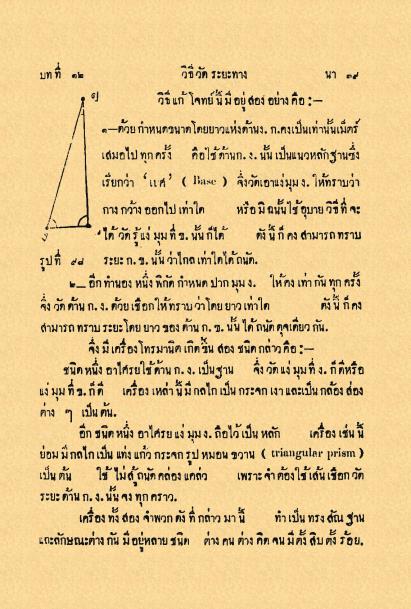 บทที่ ๑๒ วิธีวัดระยะทาง นา ๓๙
วิธีแก้โจทย์นี้มีอยู่สองอย่างคือ :—
๑—ด้วยกำหนดขนาดโดยยาวแห่งด้านง. ก.คงเป็นเท่านั้นเม็ตร์
เสมอไปทุกครั้ง คือใช้ด้านก. ง. นั้นเป็นแนวหลักฐานซึ่ง
เรียกว่า 'เบศ' ( Base ) จึ่งวัดเอาแง่มุมง. ให้ทราบว่า
กางกว้างออกไปเท่าใด หรือมิฉนั้นใช้อุบายวิธีที่จะ
ได้วัดรู้แง่มุมที่ข. นั้นก็ได้ ดังนี้ก็คงสามารถทราบ
รูปที่ ๙๘ ระยะ ก.ข. นั้นว่าไกลเท่าใดได้ถนัด.
๒— อีกทำนองหนึ่งพิกัดกำหนดปากมุมง. ให้คงเท่ากันทุกครั้ง
จึ่งวัดด้านก. ง. ด้วยเชือกให้ทราบว่าโดยยาวเท่าใด ดังนี้ก็คง
สามารถทราบระยะโดยยาวของด้านก. ข. นั้นได้ถนัดดุจเดียวกัน.
จึ่งมีเครื่องโทรมานิตเกิดขึ้นสองชนิดกล่าวคือ :—
ชนิดหนึ่งอาไศรยใช้ด้านก. ง. เป็นฐาน จึ่งวัดแง่มุมที่ง. ก็ดีหรือ
แง่มุมที่ข. ก็ดี เครื่องเหล่านี้มีกลไกเป็นกระจกเงาและเป็นกล้องส่อง
ต่าง ๆ เป็นต้น.
อีกชนิดหนึ่งอาไศรยแง่มุมง. ถือไว้เป็นหลัก เครื่องเช่นนี้
ย่อมมีกลไกเป็นแท่งแก้วกระจกรูปหมอนขวาน ( triangular prism )
เป็นต้น ใช้ไม่สู้ถนัดคล่องแคล่ว เพราะจำต้องใช้เส้นเชือกวัด
ระยะด้านก. ง. นั้นจงทุกคราว.
เครื่องทั้งสองจำพวกดังที่กล่าวมานี้ ทำเป็นทรงสัณฐาน
และลักษณะต่างกันมีอยู่หลายชนิด ต่างคนต่างคิดจนมีตั้งสิบตั้งร้อย.